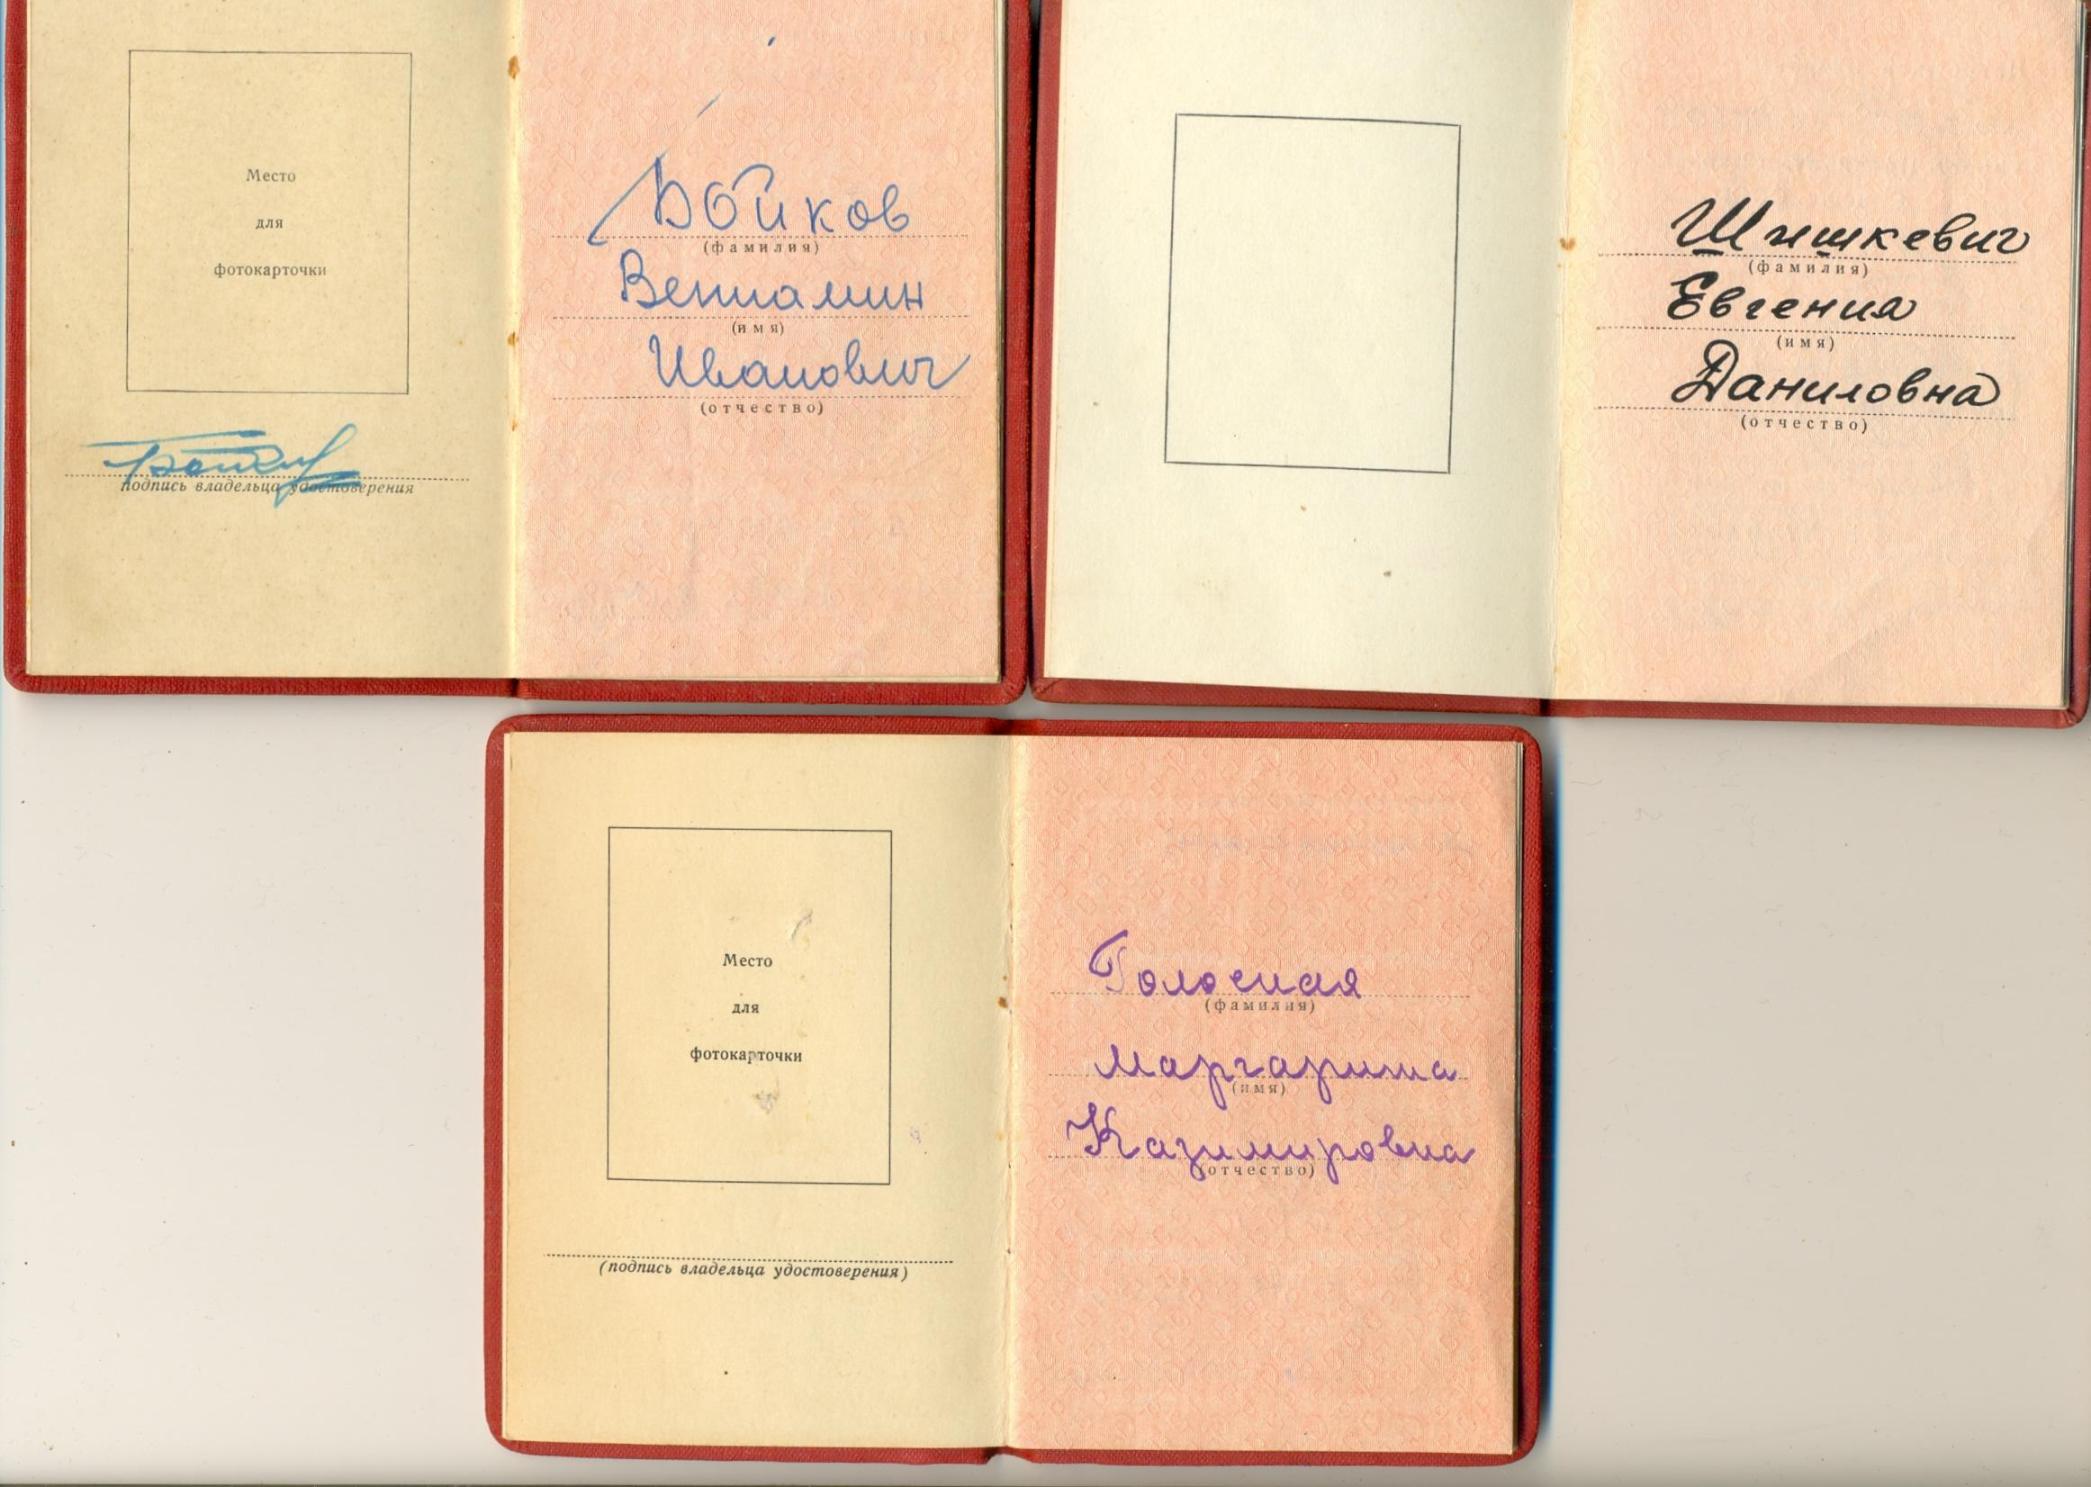 Место
для
фотокарточки
подпись владельца удостоверения
Бойков
(фамилия)
Вениамин
(имя)
Иванович
(отчество)
Шишкевич
(фамилия)
Евгения
(имя)
Даниловна
(отчество)
Место
для
фотокарточки
(подпись владельца удостоверения)
(фамилия)
Маргарита
(имя)
Казимировна
(отчество)